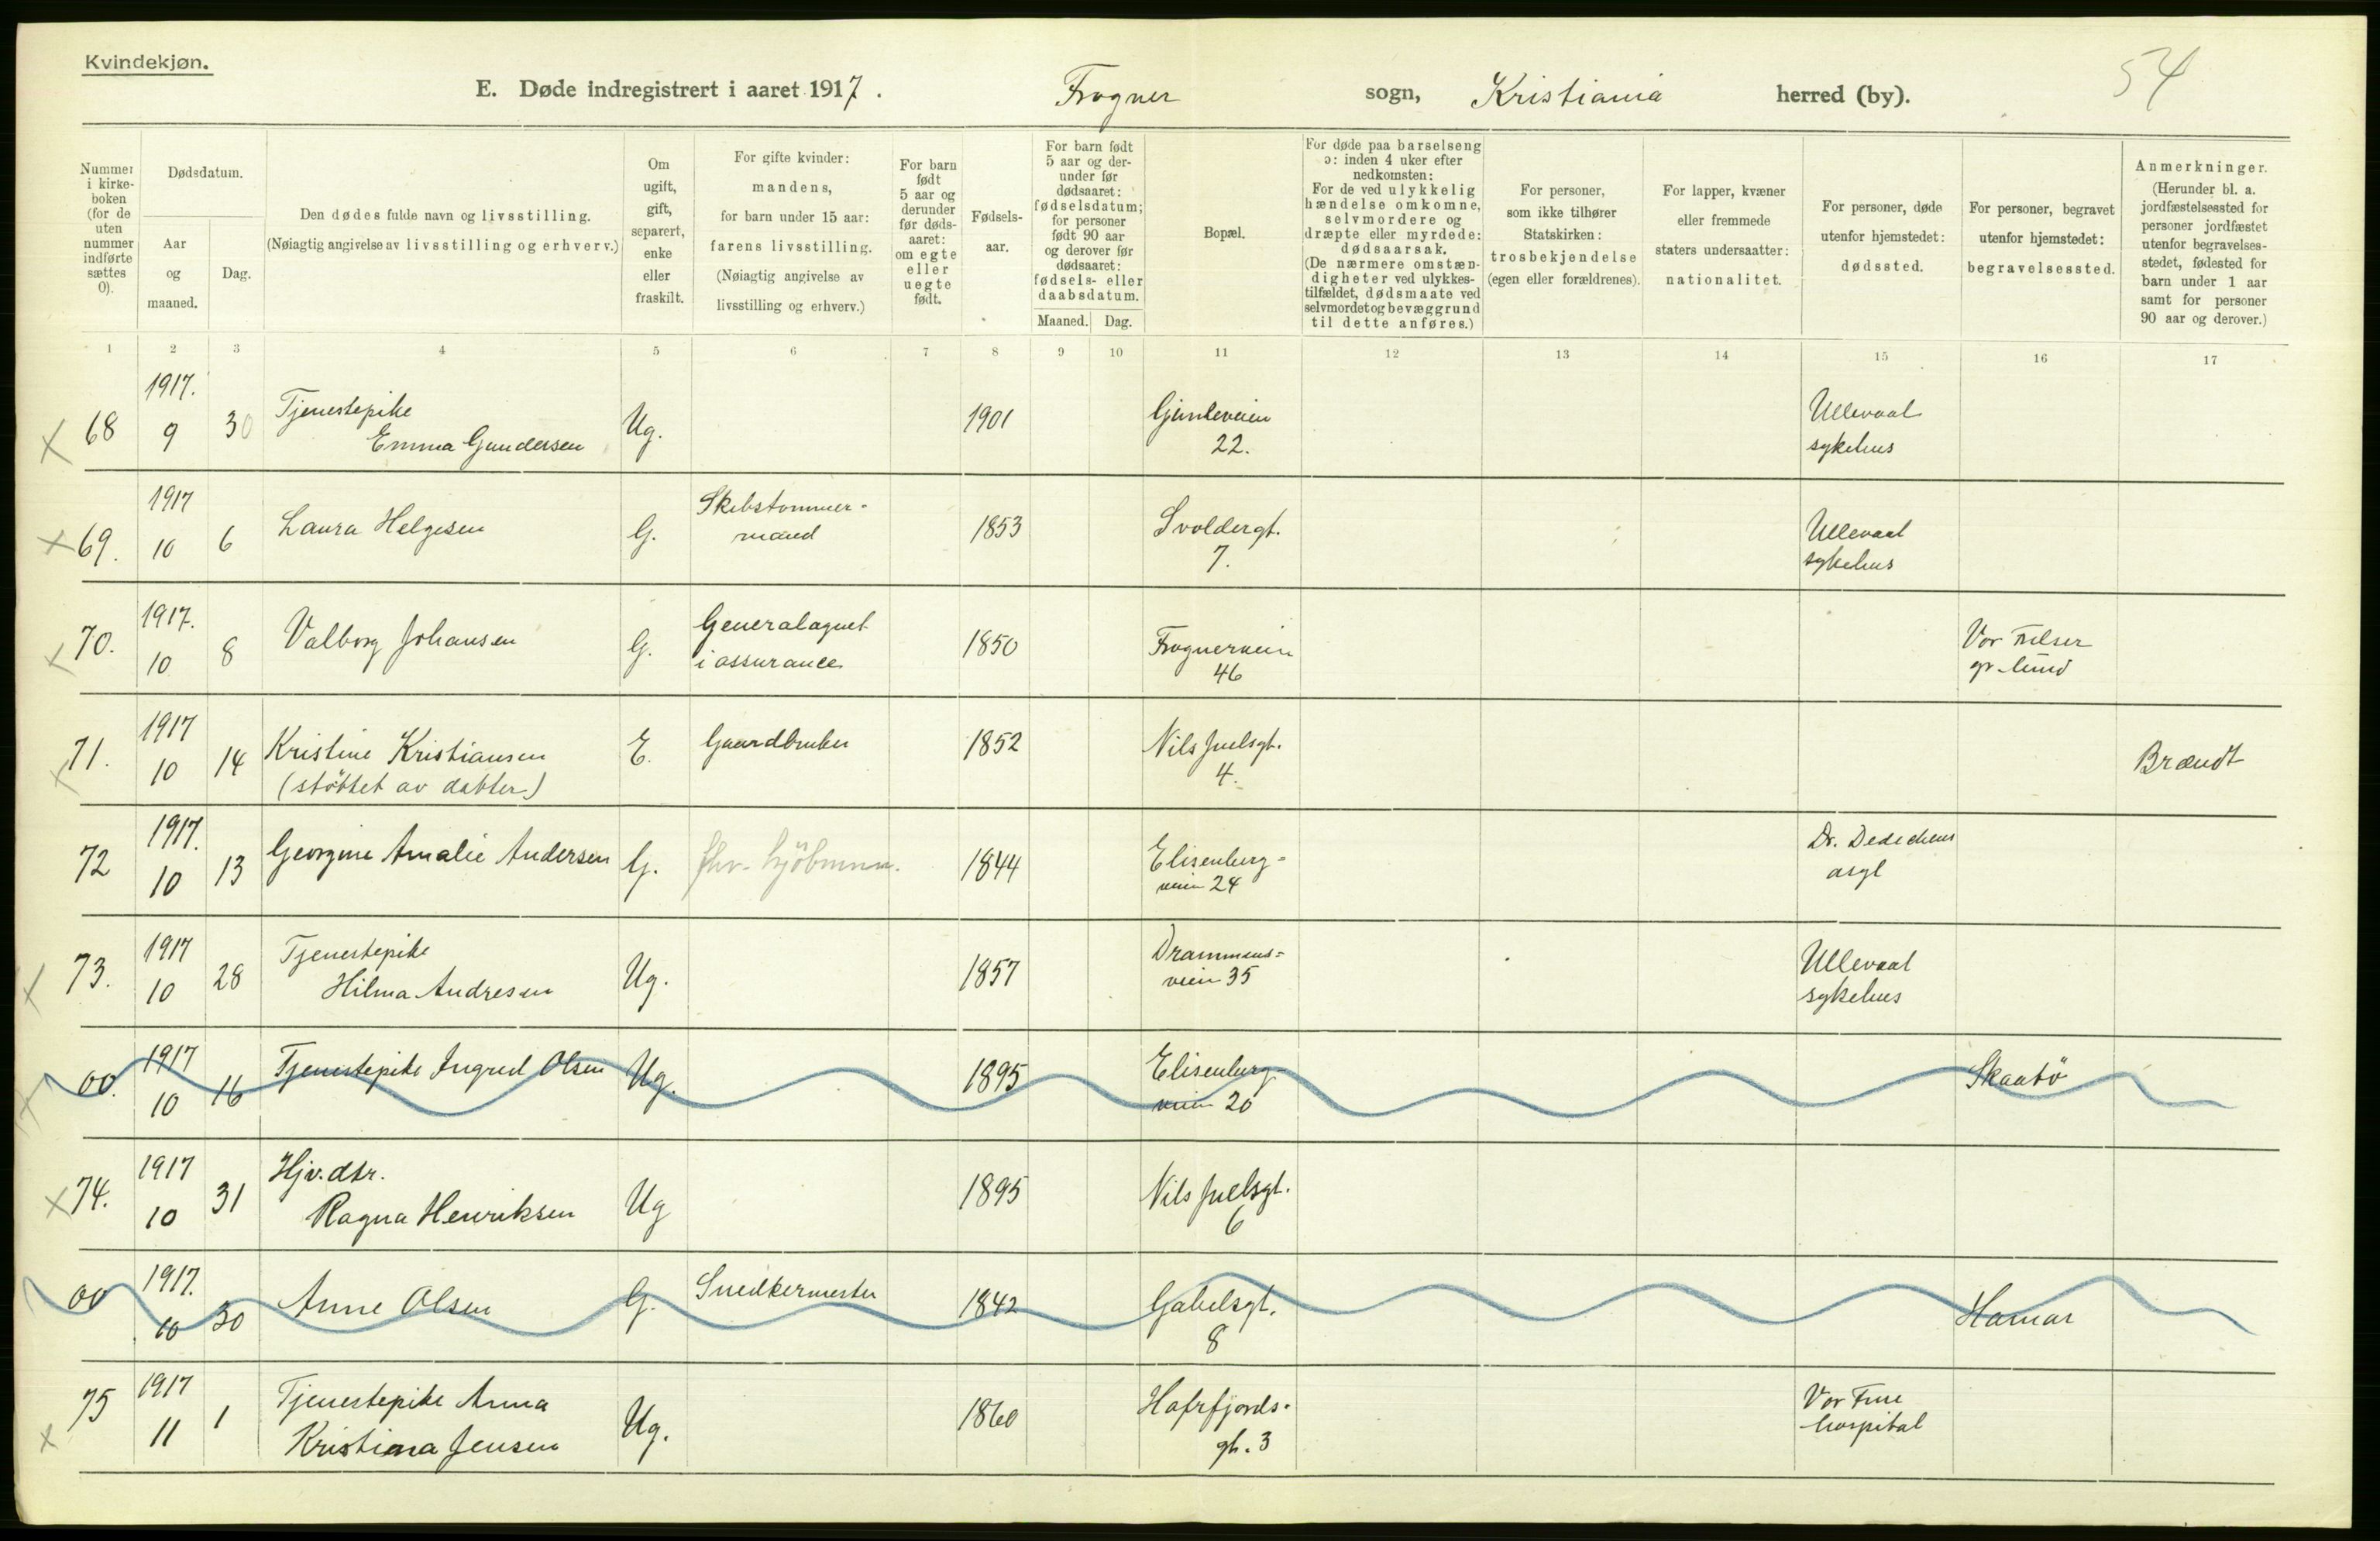 Kvindekjøn.
E. Døde indregistrert i aaret 1917.
Frogner sogn, Kristiania herred (by).
54
Nummer i kirkeboken (for de uten nummer indførte sættes 0).
Dødsdatum.
Aar og maaned.
Dag.
Den dødes fulde navn og livsstilling.
(Nøiagtig angivelse av livsstilling og erhverv.)
Om ugift, gift, separert, enke eller fraskilt.
For gifte kvinder: mandens, for barn under 15 aar: farens livsstilling.
(Nøiagtig angivelse av livsstilling og erhverv.)
For barn født 5 aar og derunder før dødsaaret: om egte eller uegte født.
Fødselsaar.
For barn født 5 aar og derunder før dødsaaret: fødselsdatum; for personer født 90 aar og derover før dødsaaret: fødsels- eller daabsdatum.
Maaned. Dag.
Bopæl.
For døde paa barselseng ɔ: inden 4 uker efter nedkomsten:
For de ved ulykkelig hændelse omkomne, selvmordere og dræpte eller myrdede: dødsaarsak.
(De nærmere omstændigheter ved ulykkestilfældet, dødsmaate ved selvmordet og bevæggrund til dette anføres.)
For personer, som ikke tilhører Statskirken: trosbekjendelse (egen eller forældrenes).
For lapper, kvæner eller fremmede staters undersaatter: nationalitet.
For personer, døde utenfor hjemstedet: dødssted.
For personer, begravet utenfor hjemstedet: begravelsessted.
Anmerkninger.
(Herunder bl. a. jordfæstelsessted for personer jordfæstet utenfor begravelsesstedet, fødested for barn under 1 aar samt for personer 90 aar og derover.)
1 2 3 4 5 6 7 8 9 10 11 12 13 14 15 16 17
x 68 1917. 9 30 Tjenestepike Emma Gundersen Ug. 1901 22. Ullevaal sykehus
x 69. 1917 10 6 Laura Helgesen G. Skibstømmermand 1853 Svoldergt. 7. Ullevaal sykehus
x 70. 1917. 10 8 Valborg Johansen G. Generalagent i assurance 1850 Frognerveien 46 Vor Frelser gr.lund
x 71. 1917 10 14 Kristine Kristiansen (støttet av datter) E. Gaardbruker 1852 Nils Juelsgt. 4. Brændt
72 1917. 10 13 Georgine Amalie Andersen G. fhv. kjøbmann. 1844 Elisenberg= veien 24 Dr. Dedichens asyl
x 73. 1917 10 28 Tjenestepike Hilma Andresen Ug. 1857 Drammens= veien 35 Ullevaal sykehus
x 00. 1917 10 16 Tjenestepike Ingrid Olsen Ug. 1895 Elisenberg- veien 20 Skaatö
x 74. 1917 10 31 Hjv.dtr. Ragna Henriksen Ug 1895 Nils Juelsgt. 6
00 1917. 10 30 Anne Olsen G. Snedkermester 1842 Gabelsgt. 8 Hamar
x 75 1917 11 1 Tjenestepike Anna Kristiana Jensen Ug. 1860 Hafrfjords- gt. 3 Vor Frue hospital